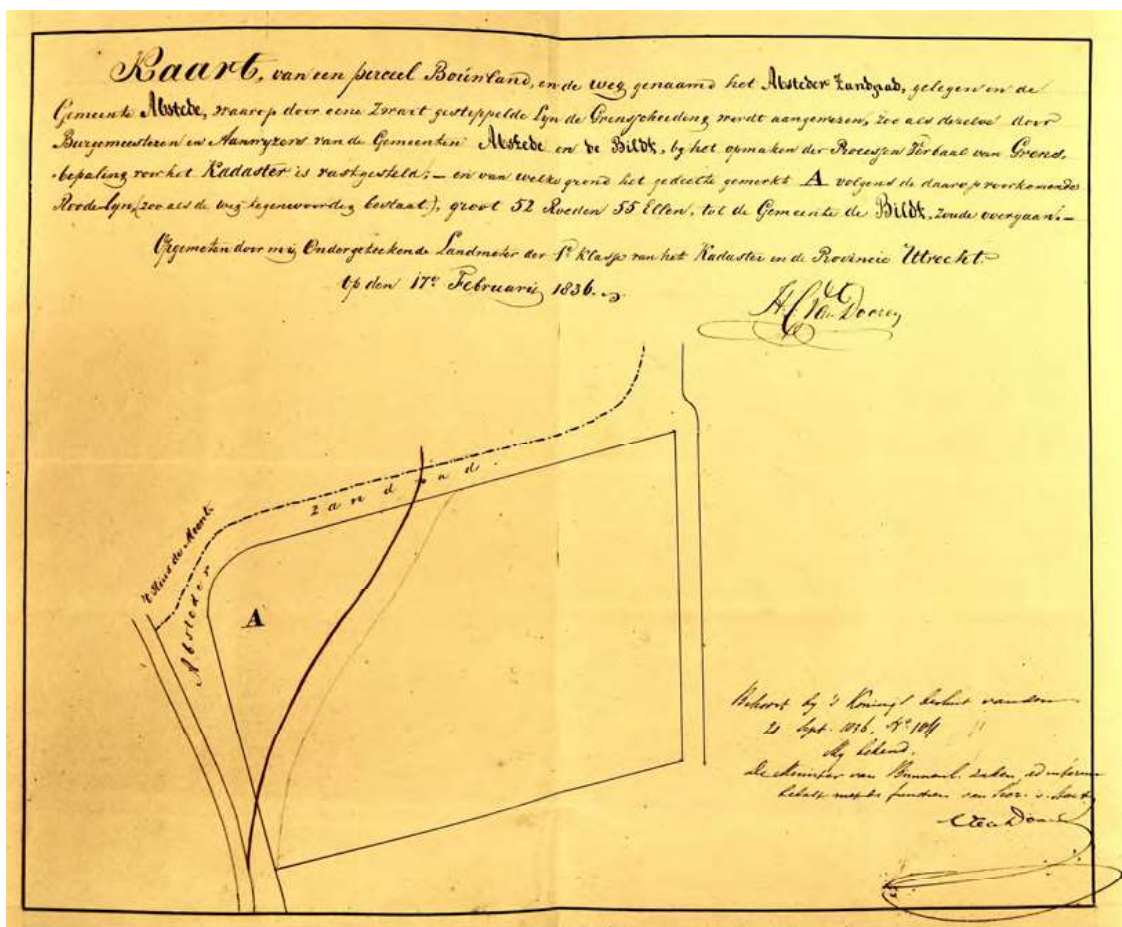 Kaart, van een perceel Bouwland, en de weg genaamd het Absteder Zandpad, gelegen in de
Gemeente Abstede, waarop door eene Zwart gestippelde Lyn de Grensscheiding wordt aangewezen, zoo als dezelve door
Burgemeesteren en Aanwyzers van de Gemeenten Abstede en de Bildt, by het opmaken der Processen Verbaal van Grens-
bepaling voor het Kadaster is vastgesteld; — en van welke grond het gedeelte gemerkt A volgens de daarop voorkomende
Roode Lyn, (zoo als de weg tegenwoordig bestaat), groot 52 Roeden 55 Ellen, tot de Gemeente de Bildt, zoude overgaan. —
Opgemeten door mij Ondergeteekende Landmeter der 1e Klasse van het Kadaster in de Provincie Utrecht.
Op den 17e Februarij 1836.
H. C. Van Dooren
't Huis de Meent
Absteder
Zandpad
A
Behoort by 's Konings besluit van den
21 Sept. 1836. No 104
My bekend,
De Minister van Binnenl. zaken, ad interim
belast met de functien van Secr. v. Staat